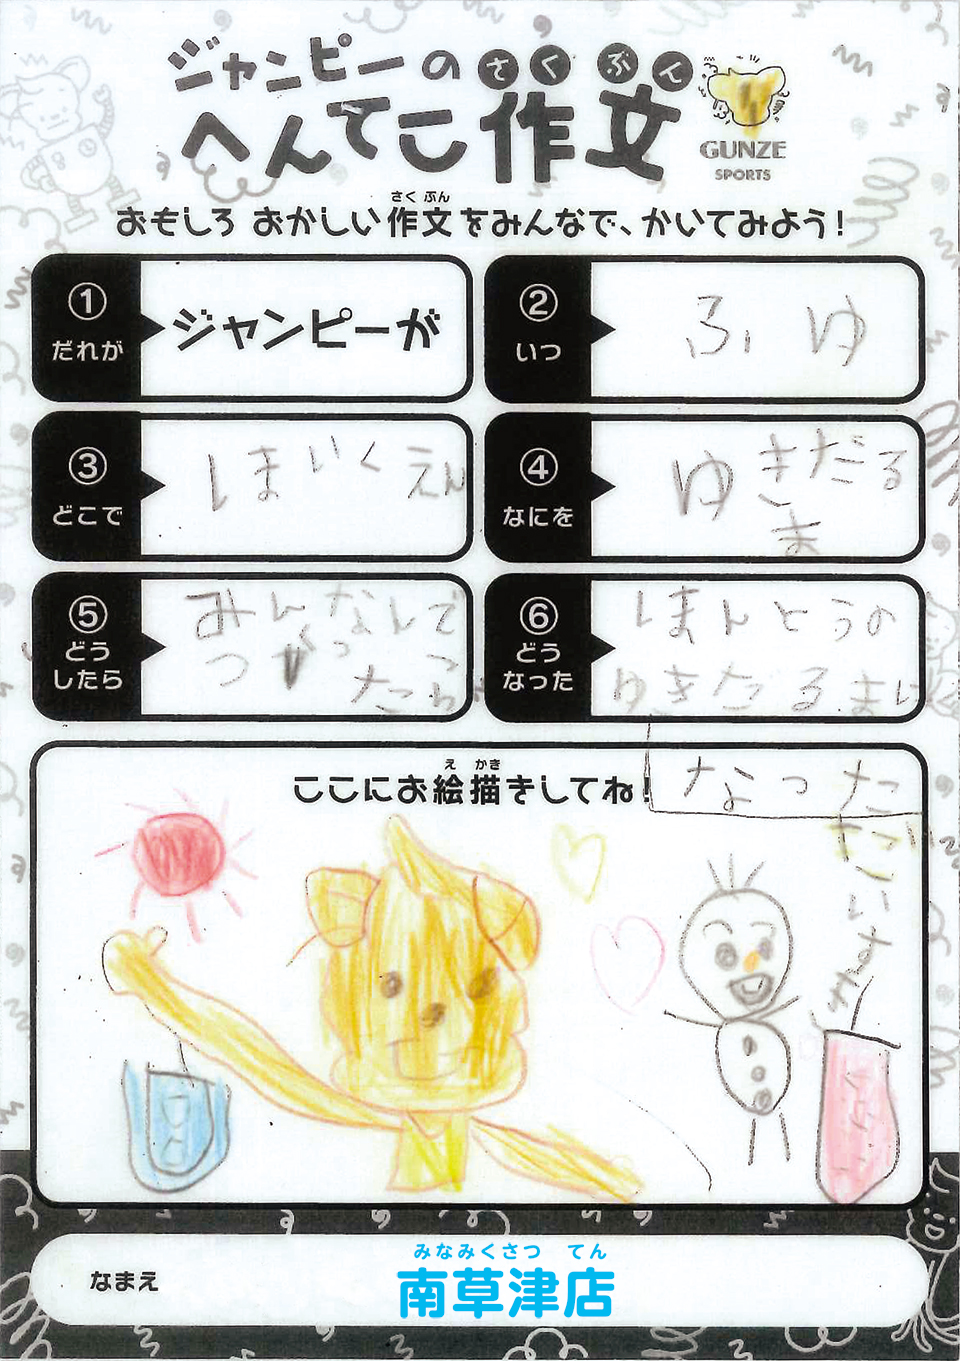 ジャンピーの さくぶん
へんてこ作文
GUNZE
SPORTS
さく ぶん
おもしろ おかしい作文をみんなで、かいてみよう!
① だれが
ジャンピーが
② いつ
ふゆ
③ どこで
ほいくえん
④ なにを
ゆきだる
ま
⑤ どう
したら
みんなして
つ
たら
⑥ どう
なった
ほんとうの
ゆきだるまに
なった
え かき
ここにお絵描きしてね!
みなみくさつ てん
なまえ 南草津店